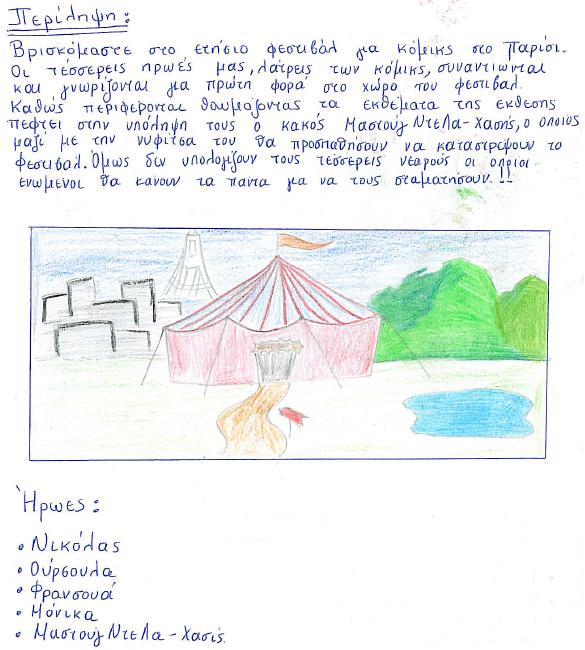 Περίληψη:
Βρισκόμαστε στο ετήσιο φεστιβάλ για κόμικς στο Παρίσι.
Οι τέσσερεις ηρωές μας, λάτρεις των κόμικς, συναντιώνται
και γνωρίζονται για πρώτη φορά στο χώρο του φεστιβαλ.
Καθώς περιφέρονται θαυμάζοντας τα εκθέματα της εκθεσης
πέφτει στην υπόληψη τους ο κακός Μαστούχ Ντελα-Χασής, ο οποίος
μαζί με την νυφίτσα του θα προσπαθήσουν να καταστρέψουν το
φεστιβαλ. Όμως δεν υπολογίζουν τους τέσσερεις νεαρούς οι οποίοι
ενωμένοι θα κάνουν τα πάντα για να τους σταματήσουν!!
Ήρωες:
• Νικόλας
• Ούρσουλα
• Φρανσουά
• Μόνικα
• Μαστούχ Ντελα-Χασίς.